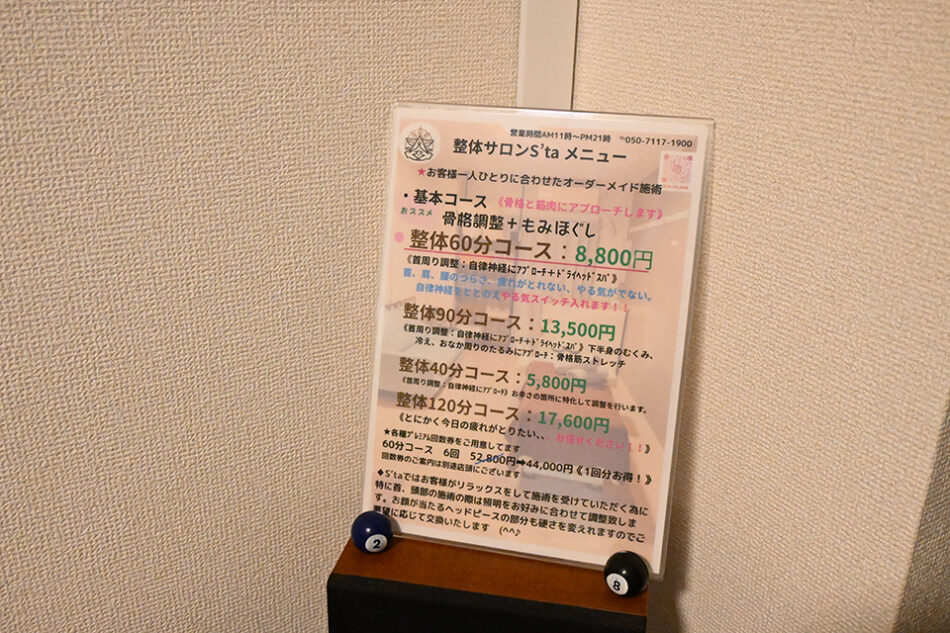 営業時間AM11時〜PM21時 ℡050-7117-1900
整体サロンS'ta メニュー
★お客様一人ひとりに合わせたオーダーメイド施術
・基本コース 《骨格と筋肉にアプローチします》
おススメ 骨格調整＋もみほぐし
●整体60分コース：8,800円
《首周り調整：自律神経にｱﾌﾟﾛｰﾁ＋ﾄﾞﾗｲﾍｯﾄﾞｽﾊﾟ》
首、肩、腰のつらさ、疲れがとれない、やる気がでない。
自律神経をととのえやる気スイッチ入れます！！
整体90分コース：13,500円
《首周り調整：自律神経にｱﾌﾟﾛｰﾁ＋ﾄﾞﾗｲﾍｯﾄﾞｽﾊﾟ》下半身のむくみ、
冷え、おなか周りのたるみにｱﾌﾟﾛｰﾁ：骨格筋ストレッチ
整体40分コース：5,800円
《首周り調整：自律神経にｱﾌﾟﾛｰﾁ》お辛さの箇所に特化して調整を行います。
整体120分コース：17,600円
《とにかく今日の疲れがとりたい、、、お任せください！！》
★各種ﾌﾟﾚﾐｱﾑ回数券をご用意してます
60分コース 6回 52,800円➡44,000円《1回分お得！》
回数券のご案内は別途店頭にございます
♦S'taではお客様がリラックスをして施術を受けていただく為に
特に首、頭部の施術の際は照明をお好みに合わせて調整致しま
す。お顔が当たるヘッドピースの部分も硬さを変えれますのでご
要望に応じて交換いたします (^^♪
2
8